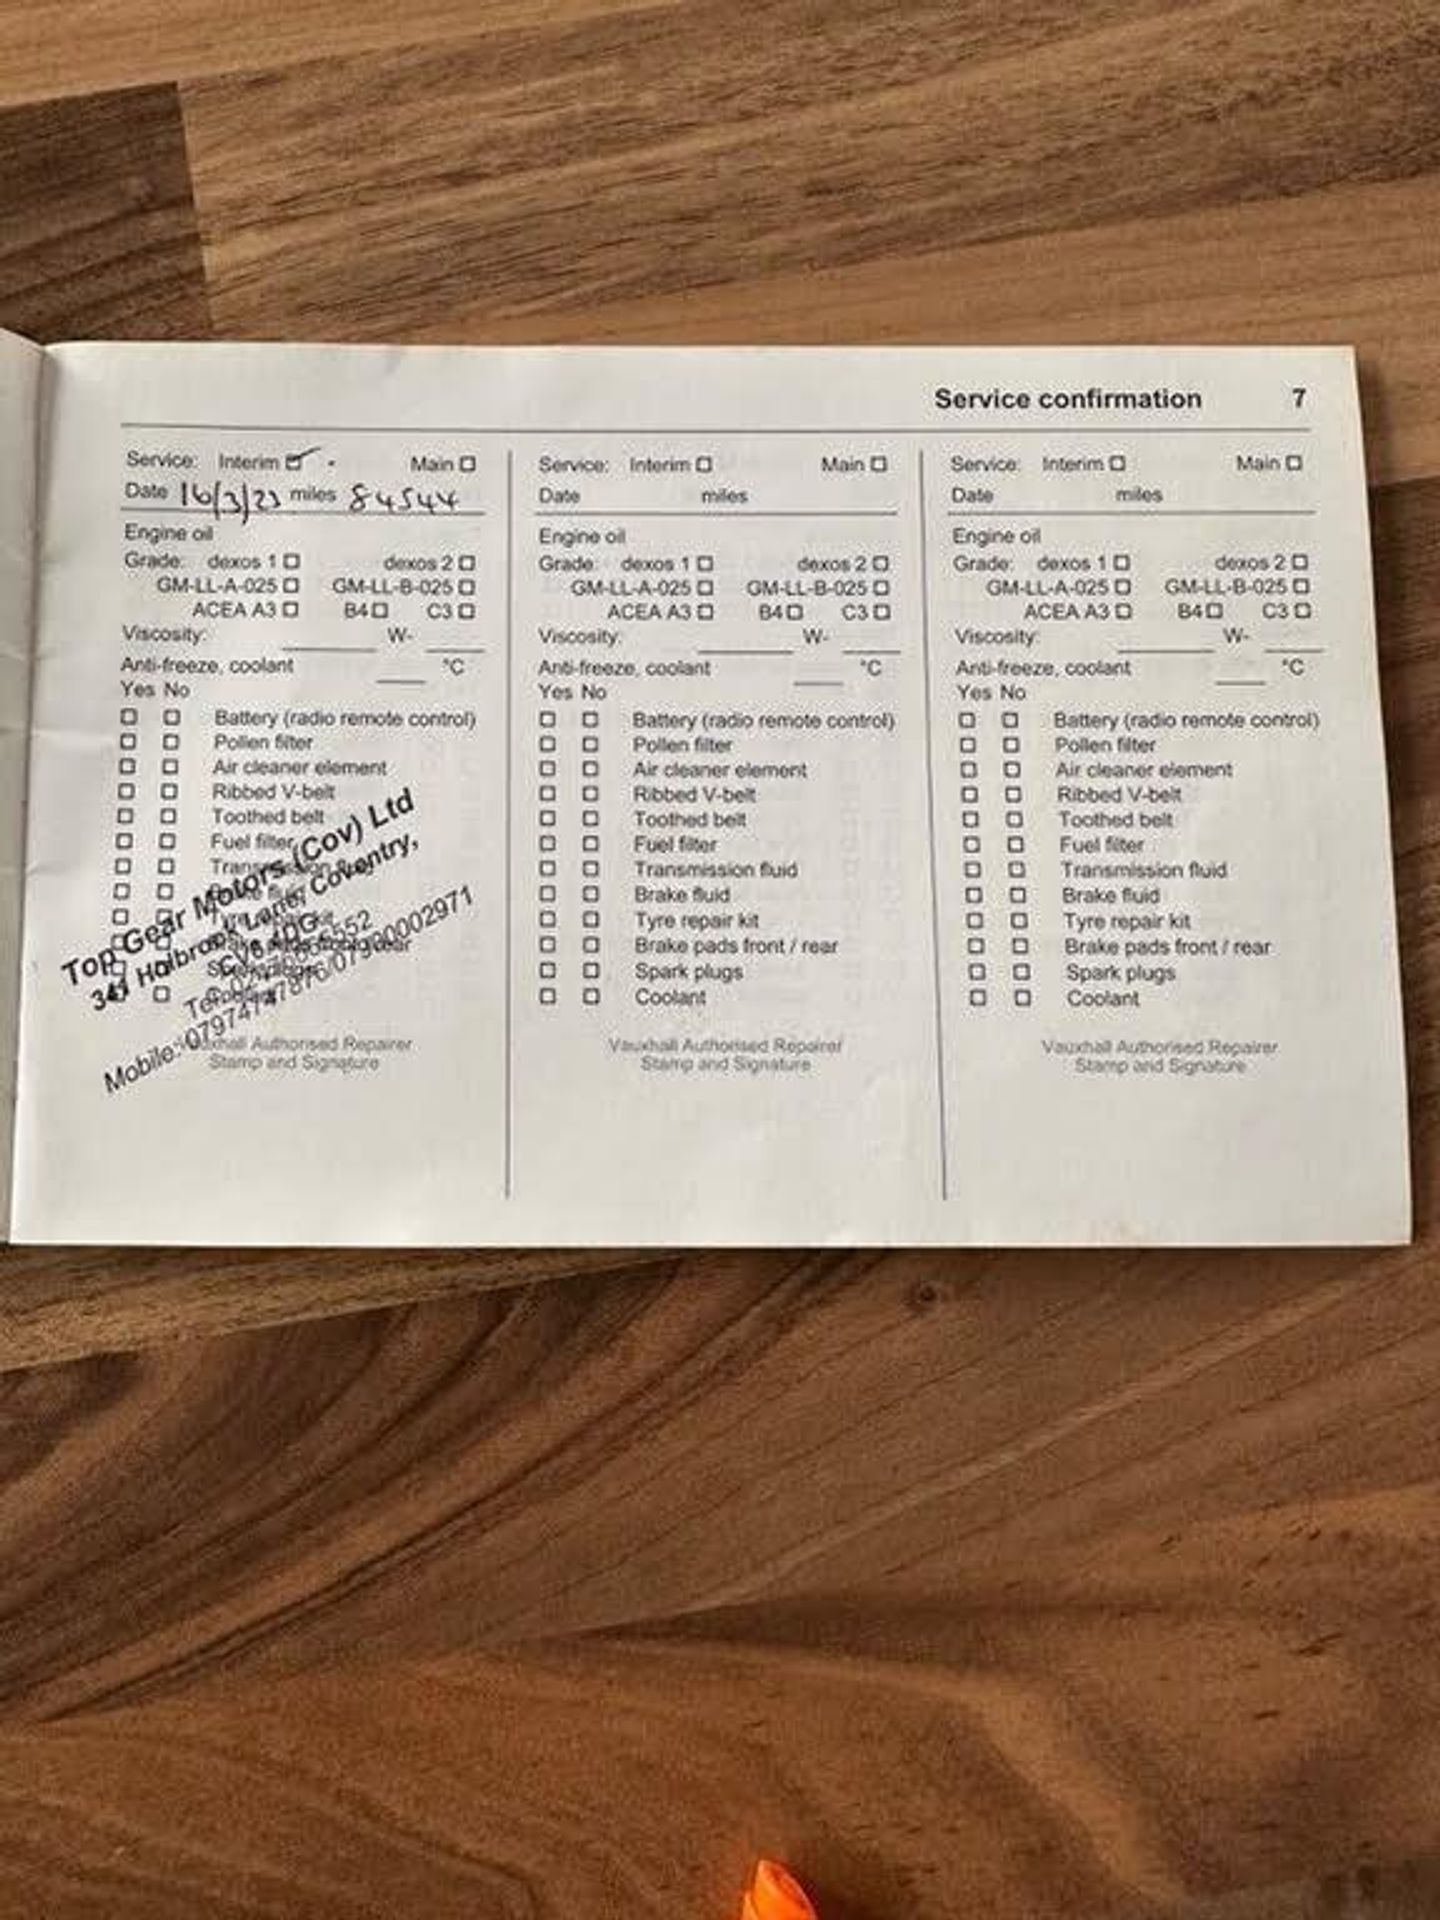 Service confirmation 7
Service: Interim Main
Date 16/3/23 miles 84544
Engine oil
Grade: dexos 1 dexos 2
GM-LL-A-025 GM-LL-B-025
ACEA A3 B4 C3
Viscosity: W-
Anti-freeze, coolant °C
Yes No
Battery (radio remote control)
Pollen filter
Air cleaner element
Ribbed V-belt
Toothed belt
Fuel filter
Top Gear Motors (Cov) Ltd
341 Holbrook Lane, Coventry,
Mobile:
Vauxhall Authorised Repairer
Stamp and Signature
Service: Interim Main
Date miles
Engine oil
Grade: dexos 1 dexos 2
GM-LL-A-025 GM-LL-B-025
ACEA A3 B4 C3
Viscosity: W-
Anti-freeze, coolant °C
Yes No
Battery (radio remote control)
Pollen filter
Air cleaner element
Ribbed V-belt
Toothed belt
Fuel filter
Transmission fluid
Brake fluid
Tyre repair kit
Brake pads front / rear
Spark plugs
Coolant
Vauxhall Authorised Repairer
Stamp and Signature
Service: Interim Main
Date miles
Engine oil
Grade: dexos 1 dexos 2
GM-LL-A-025 GM-LL-B-025
ACEA A3 B4 C3
Viscosity: W-
Anti-freeze, coolant °C
Yes No
Battery (radio remote control)
Pollen filter
Air cleaner element
Ribbed V-belt
Toothed belt
Fuel filter
Transmission fluid
Brake fluid
Tyre repair kit
Brake pads front / rear
Spark plugs
Coolant
Vauxhall Authorised Repairer
Stamp and Signature